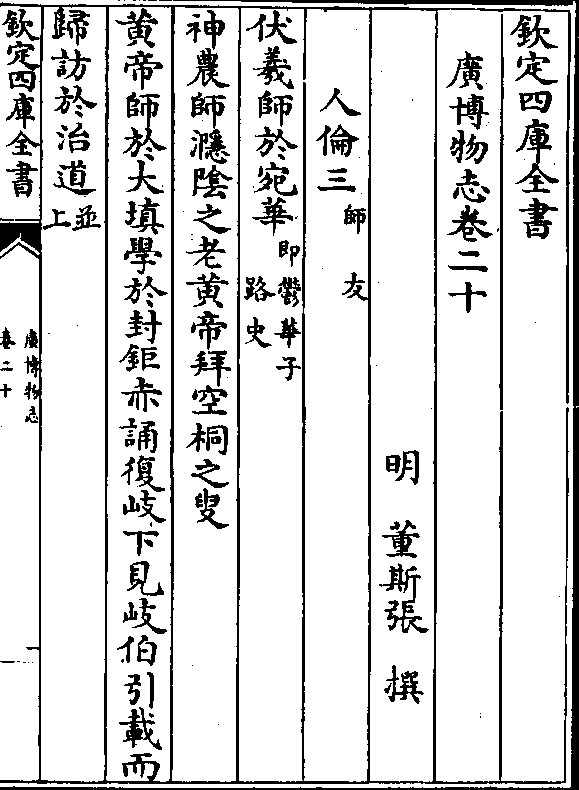 欽定四庫全書
廣博物志卷二十
明 董斯張 撰
人倫三 師 友
伏羲師於宛華 即鬱華子 路史
神農師濦陰之老黃帝拜空桐之叟
黃帝師於大填學於封鉅赤誦復岐下見岐伯引載而
歸訪於治道 並上
欽定四庫全書
廣博物志
卷二十
一